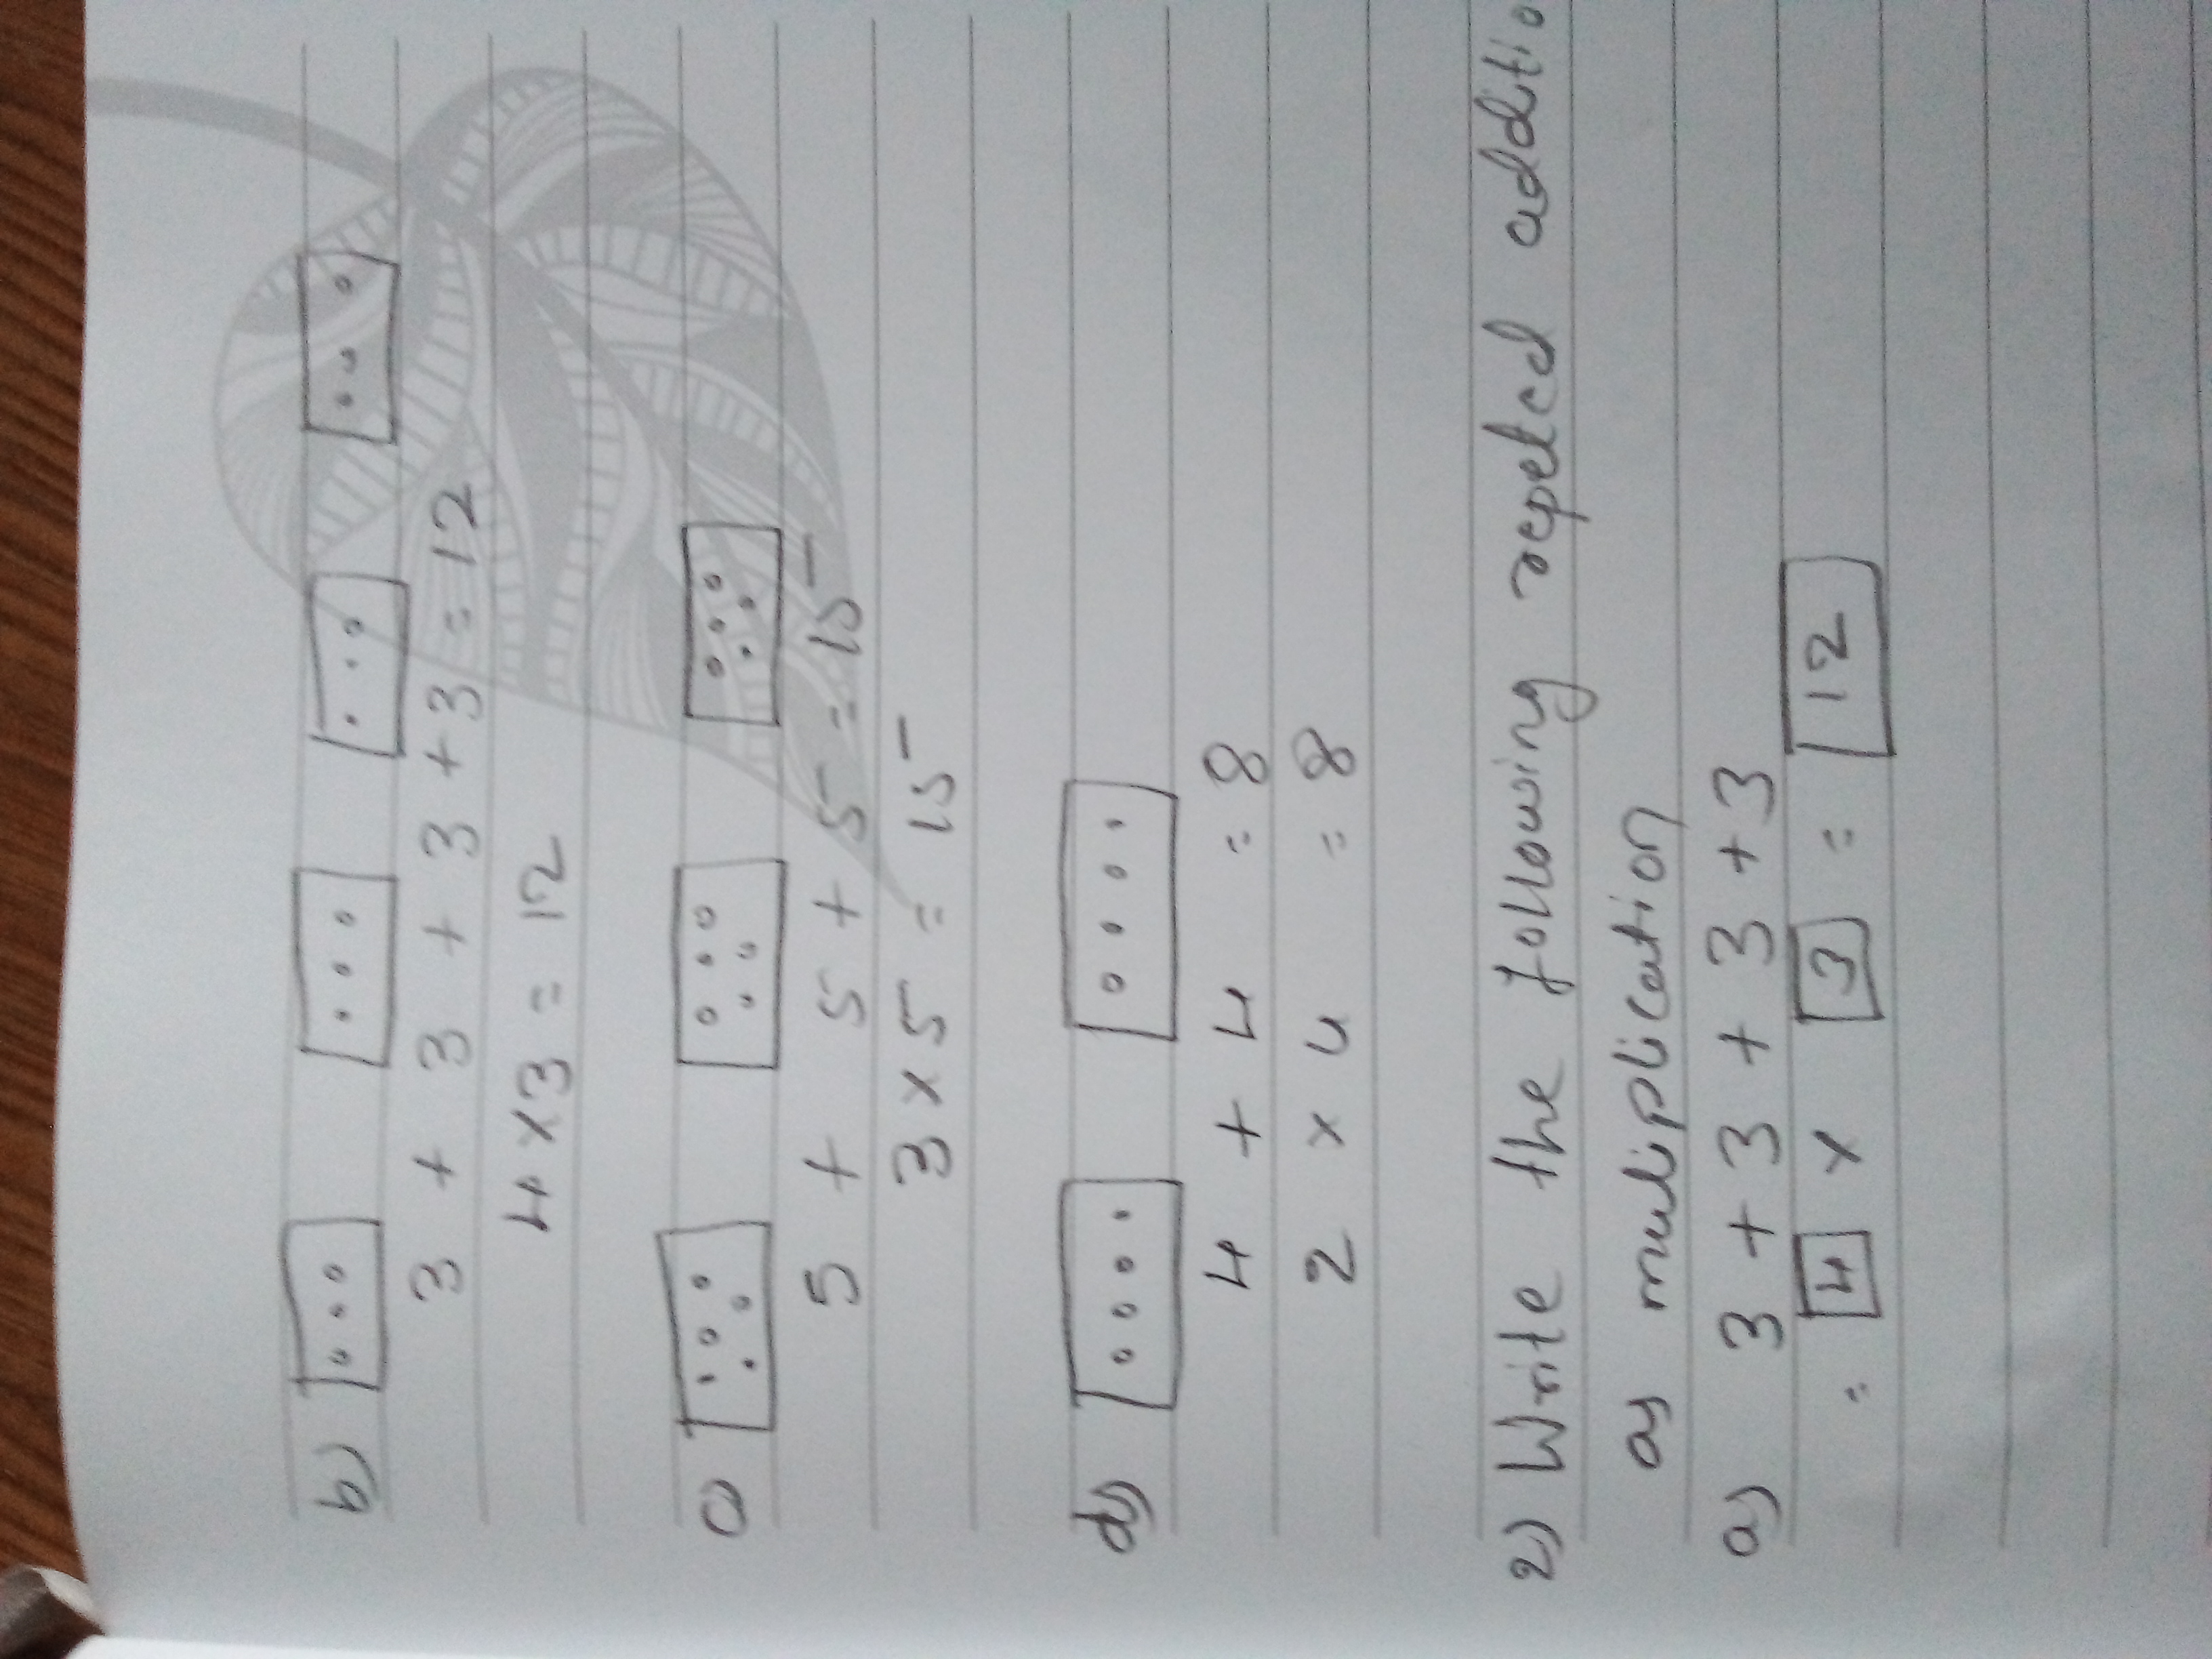 b)
3 + 3 + 3 + 3 = 12
4 x 3 = 12
c)
5 + 5 + 5 = 15
3 x 5 = 15
d)
4 + 4 = 8
2 x 4 = 8
2) Write the following repeted additio
as muliplication
a) 3 + 3 + 3 + 3
= 4 x 3 = 12